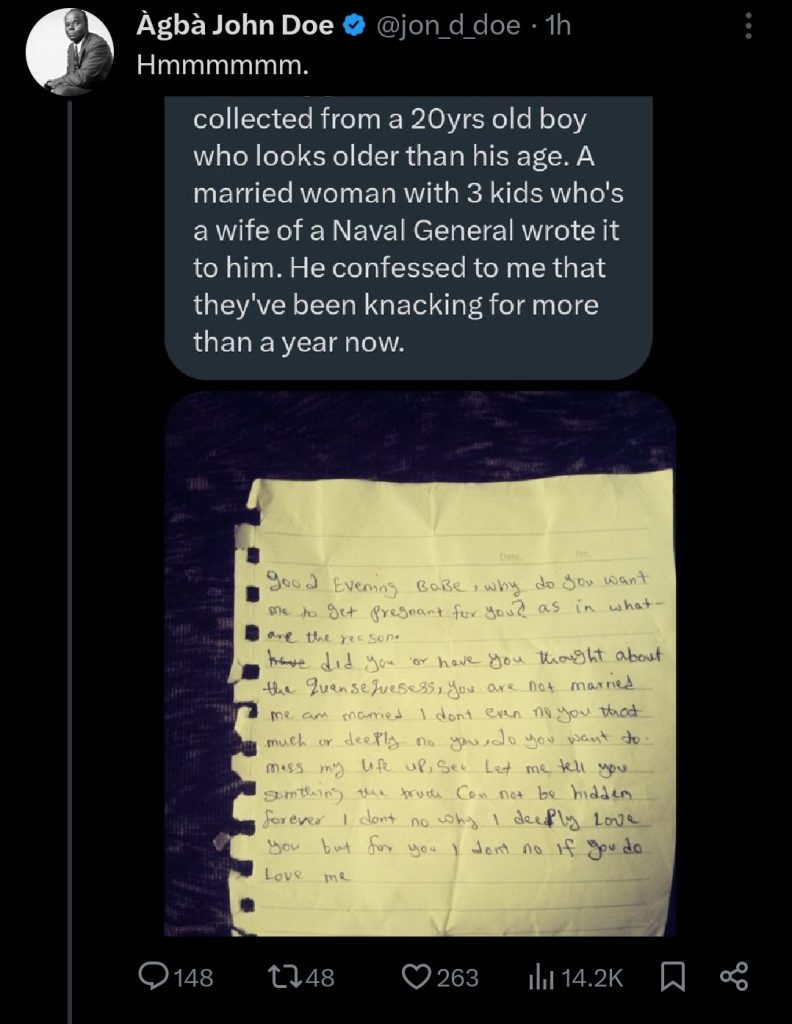 Àgbà John Doe @jon_d_doe · 1h
Hmmmmmm.
collected from a 20yrs old boy
who looks older than his age. A
married woman with 3 kids who's
a wife of a Naval General wrote it
to him. He confessed to me that
they've been knacking for more
than a year now.
Date. No.
good Evening BaBe, why do you want
me to get pregnant for you? as in what
are the reason.
have did you or have you thought about
the quensequesess, you are not married
me am married I dont even no you that
much or deeply no you, do you want to
mess my life up, See Let me tell you
something the truth Can not be hidden
forever I dont no why I deeply Love
you but for you I dont no If you do
Love me
148 48 263 14.2K